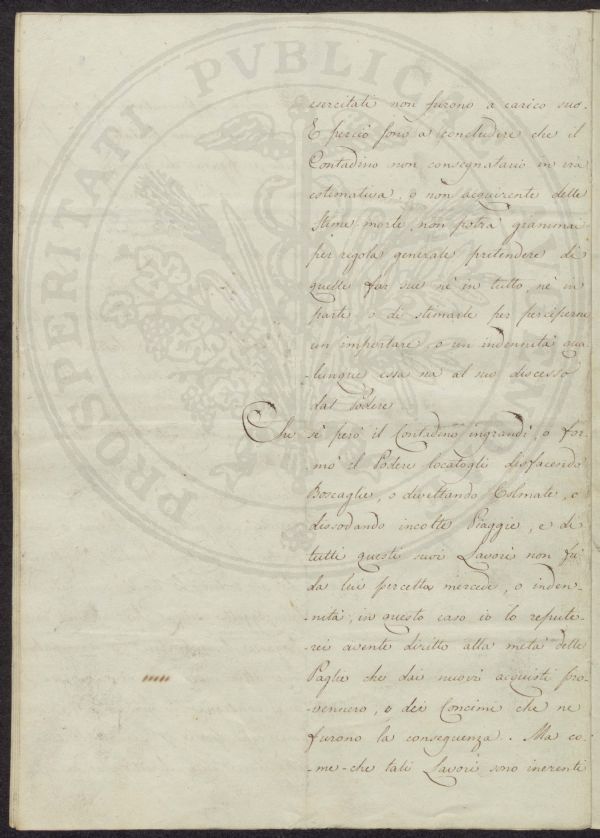 esercitati non furono a carico suo.
E perciò sono a concludere che il
Contadino non consegnatario in via
estimativa, o non acquirente delle
Stime morte, non potrà giammai
per regola generale pretendere di
quelle far sue nè in tutto nè in
parte o di stimarle per perciperne
un importare o un indennità qua-
-lunque essa sia al suo discesso
dal Podere
Che sè però il Contadino ingrandì, o for-
mò il Podere locatogli disfacendo
Boscaglie, o divettando Colmate, o
dissodando incolte Piaggie, e di
tutti questi suoi Lavori non fù
da lui percetta mercede, o inden-
-nità, in questo caso io lo repute-
-rei avente diritto alla metà delle
Paglie che dai nuovi acquisti pro-
-vennero, e dei Concimi che ne
furono la conseguenza. Ma co-
-me-che tali Lavori sono inerenti
PROSPERITATI PVBLICAE